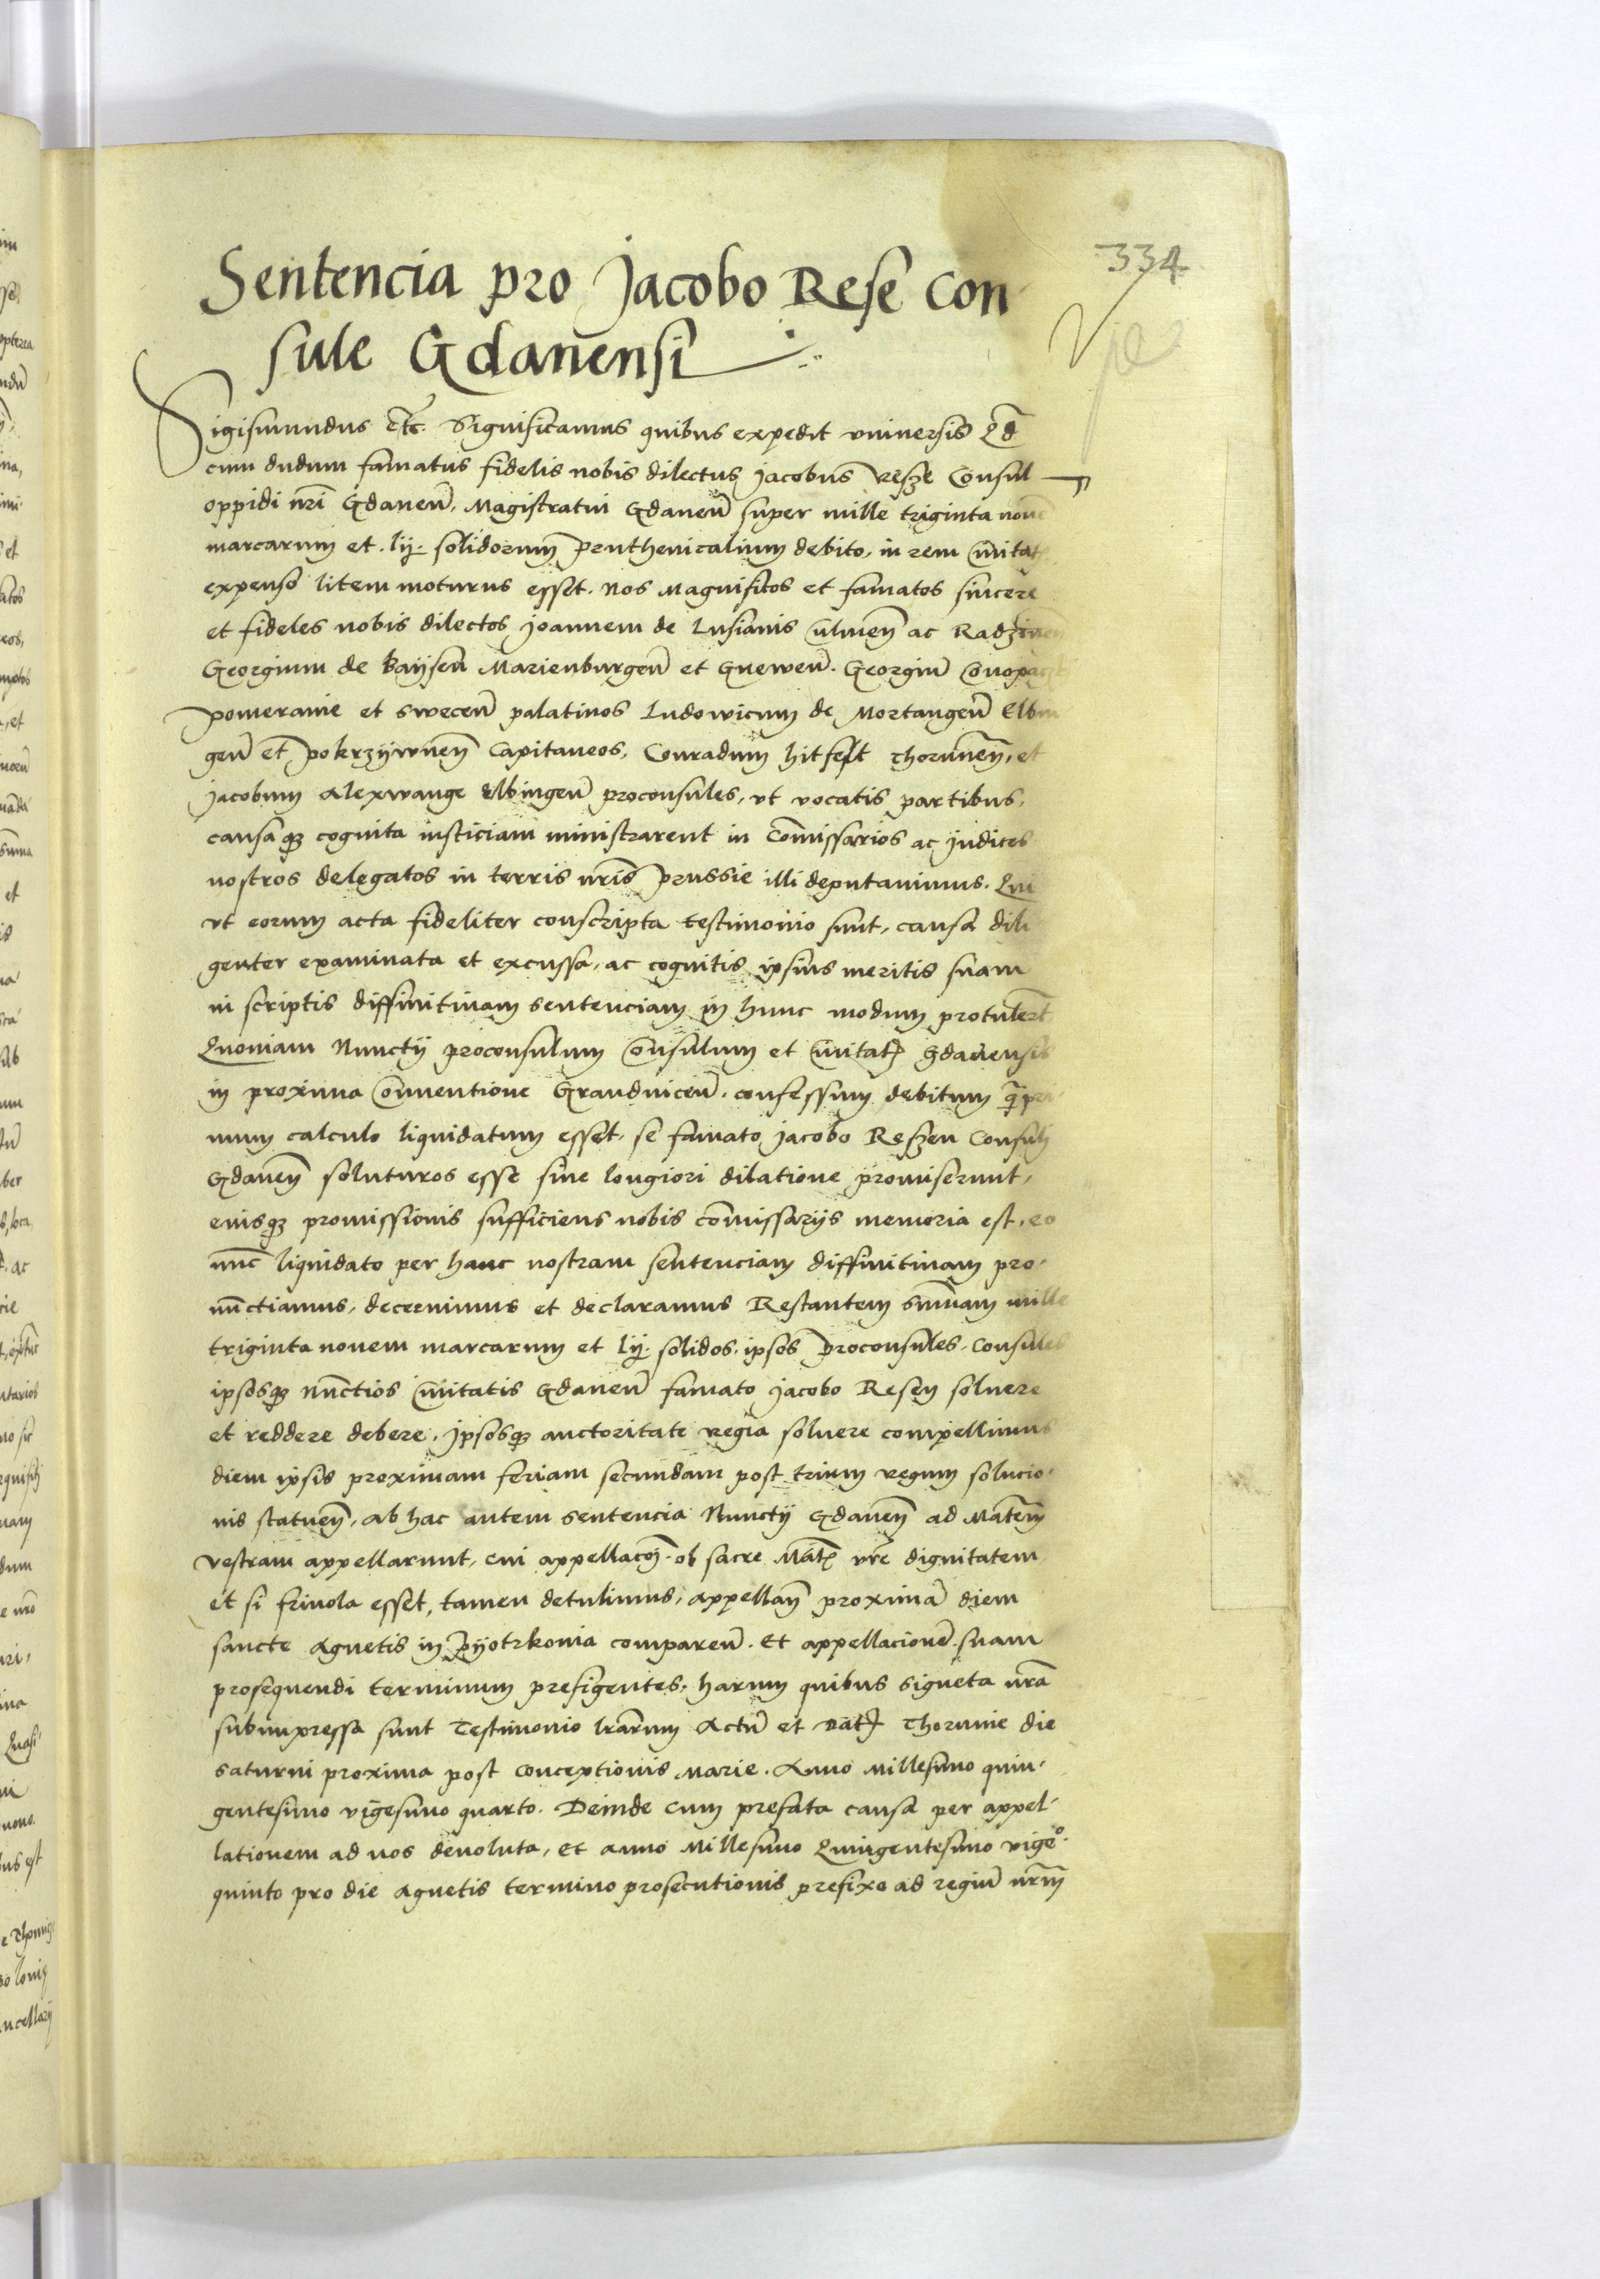 334
Sentencia pro Jacobo Rese Con
sule Gdanensi
Sigismundus etc. Significamus quibus expedit universis Qd
cum dudum famatus fidelis nobis dilectus Jacobus resze Consul
oppidi nri Gdanen, Magistratui Gdanen super mille triginta novem
marcarum et lij solidorum pruthenicalium debito, in rem civitat
expenso litem moturus esset. Nos Magnificos et famatos sincere
et fideles nobis dilectos Joannem de Lusianis Culmen ac Radzinen
Georgium de Bayßen Marienburgen et Gnewen. Georgiu Conopaczki
pomeranie et swecen palatinos Ludowicum de Mortangen Elbin
gen et pokrzywnen Capitaneos, Conradum hitfelt Thorunen, et
Jacobum Alexwange Elbingen proconsules, ut vocatis partibus,
causaq cognita iusticiam ministrarent in Comissarios ac Judices
nostros delegatos in terris nris prussie illi deputavimus. Qui
ut eorum acta fideliter conscripta testimonio sunt, causa dili
genter examinata et excussa, ac cognitis ipsius meritis suam
in scriptis diffinitivam sentenciam in hunc modum protulert
Quoniam Nunctij proconsulum Consulum et civitat Gdanensis
in proxima Conventione Graudnicen. confessum debitum q pri
mum calculo liquidatum esset, se famato Jacobo Reszen Consuli
Gdanen soluturos esse sine longiori dilatione promiserunt,
eiusq promissionis sufficiens nobis comissarijs memoria est, eo
nunc liquidato per hanc nostram sentenciam diffinitivam pro
nunctiamus, decernimus et declaramus Restantem sumam mille
triginta novem marcarum et lij solidos, ipsos proconsules, Consules
ipsosq nunctios civitatis Gdanen famato Jacobo Resen solvere
et reddere debere, Ipsosq auctoritate regia solvere compellimus
diem ipsis proximam feriam secundam post trium regum solucio
nis statuen, ab hac autem sentencia Nunctij Gdanen ad Matem
vestram appellarunt, cui appellacoi ob sacre Mat vre dignitatem
et si frivola esset, tamen detulimus, appellan proxima diem
sancte Agnetis in pyotrkovia comparen. Et appellacione suam
prosequendi terminum prefigentes, harum quibus signeta nra
subimpressa sunt Testimonio lrarum Actu et Dat Thorunie die
saturni proxima post conceptionis Marie. Anno Millesimo quin
gentesimo vigesimo quarto. Deinde cum prefata causa per appel
lationem ad nos devoluta, et anno Millesimo Quingentesimo vigeo
quinto pro die Agnetis termino prosecutionis prefixo ad regiu nrm